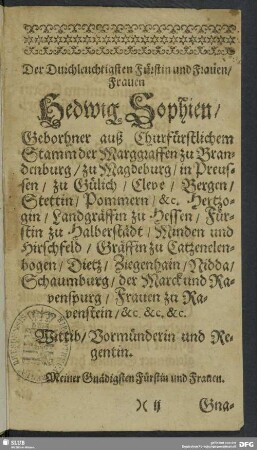 Der Durchleuchtigsten Fürstin und Frauen/
Frauen
Hedwig Sophien/
Geborhner auß Churfürstlichem
Stamm der Marggraffen zu Bran-
denburg/ zu Magdeburg/ in Preuss-
sen/ zu Gülich/ Cleve/ Bergen/
Stettin/ Pommern/ &c. Hertzo-
gin/ Landgräffin zu Hessen/ Für-
stin zu Halberstadt/ Minden und
Hirschfeld/ Gräffin zu Catzenelen-
bogen/ Dietz/ Ziegenhain/ Nidda/
Schaumburg/ der Marck und Ra-
venspurg/ Frauen zu Ra-
venstein/ &c. &c. &c.
Wittib/ Vormünderin und Re-
gentin.
Meiner Gnädigsten Fürstin und Frauen.
)( ij Gna-
SLUB